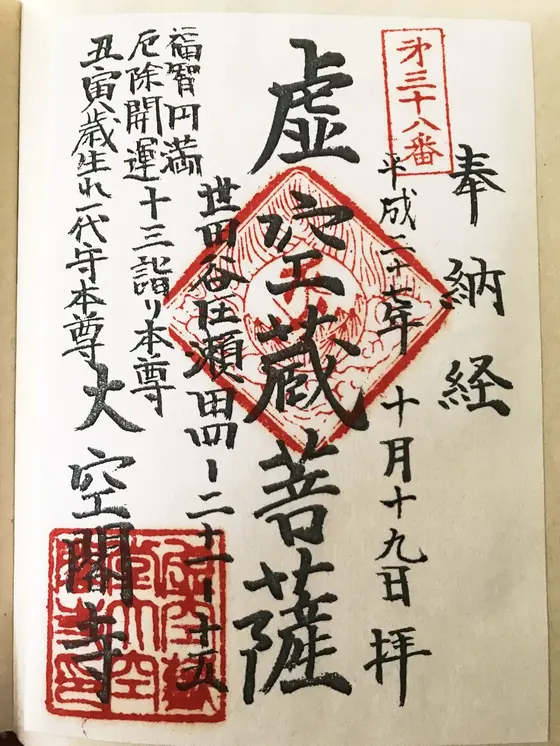 奉納経
第三十八番
平成二十七年十月十九日 拝
虚空蔵菩薩
世田谷区瀬田四ー二十一ー十五
福智円満
厄除開運十三詣り本尊
丑寅歳生れ一代守本尊
大空閣寺